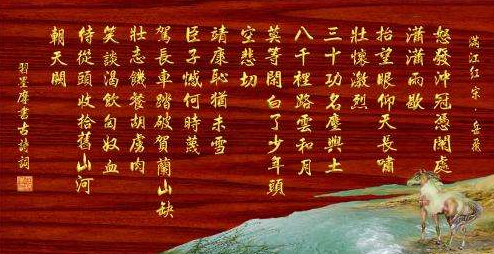 滿江紅 宋 岳飛
怒發沖冠憑闌處
瀟瀟雨歇
抬望眼仰天長嘯
壯懷激烈
三十功名塵與土
八千裡路雲和月
莫等閑白了少年頭
空悲切
靖康恥猶未雪
臣子憾何時蔑
駕長車踏破賀蘭山缺
壯志饑餐胡虜肉
笑談渴飲匈奴血
待從頭收拾舊山河
朝天闕
墨摩書古詩詞